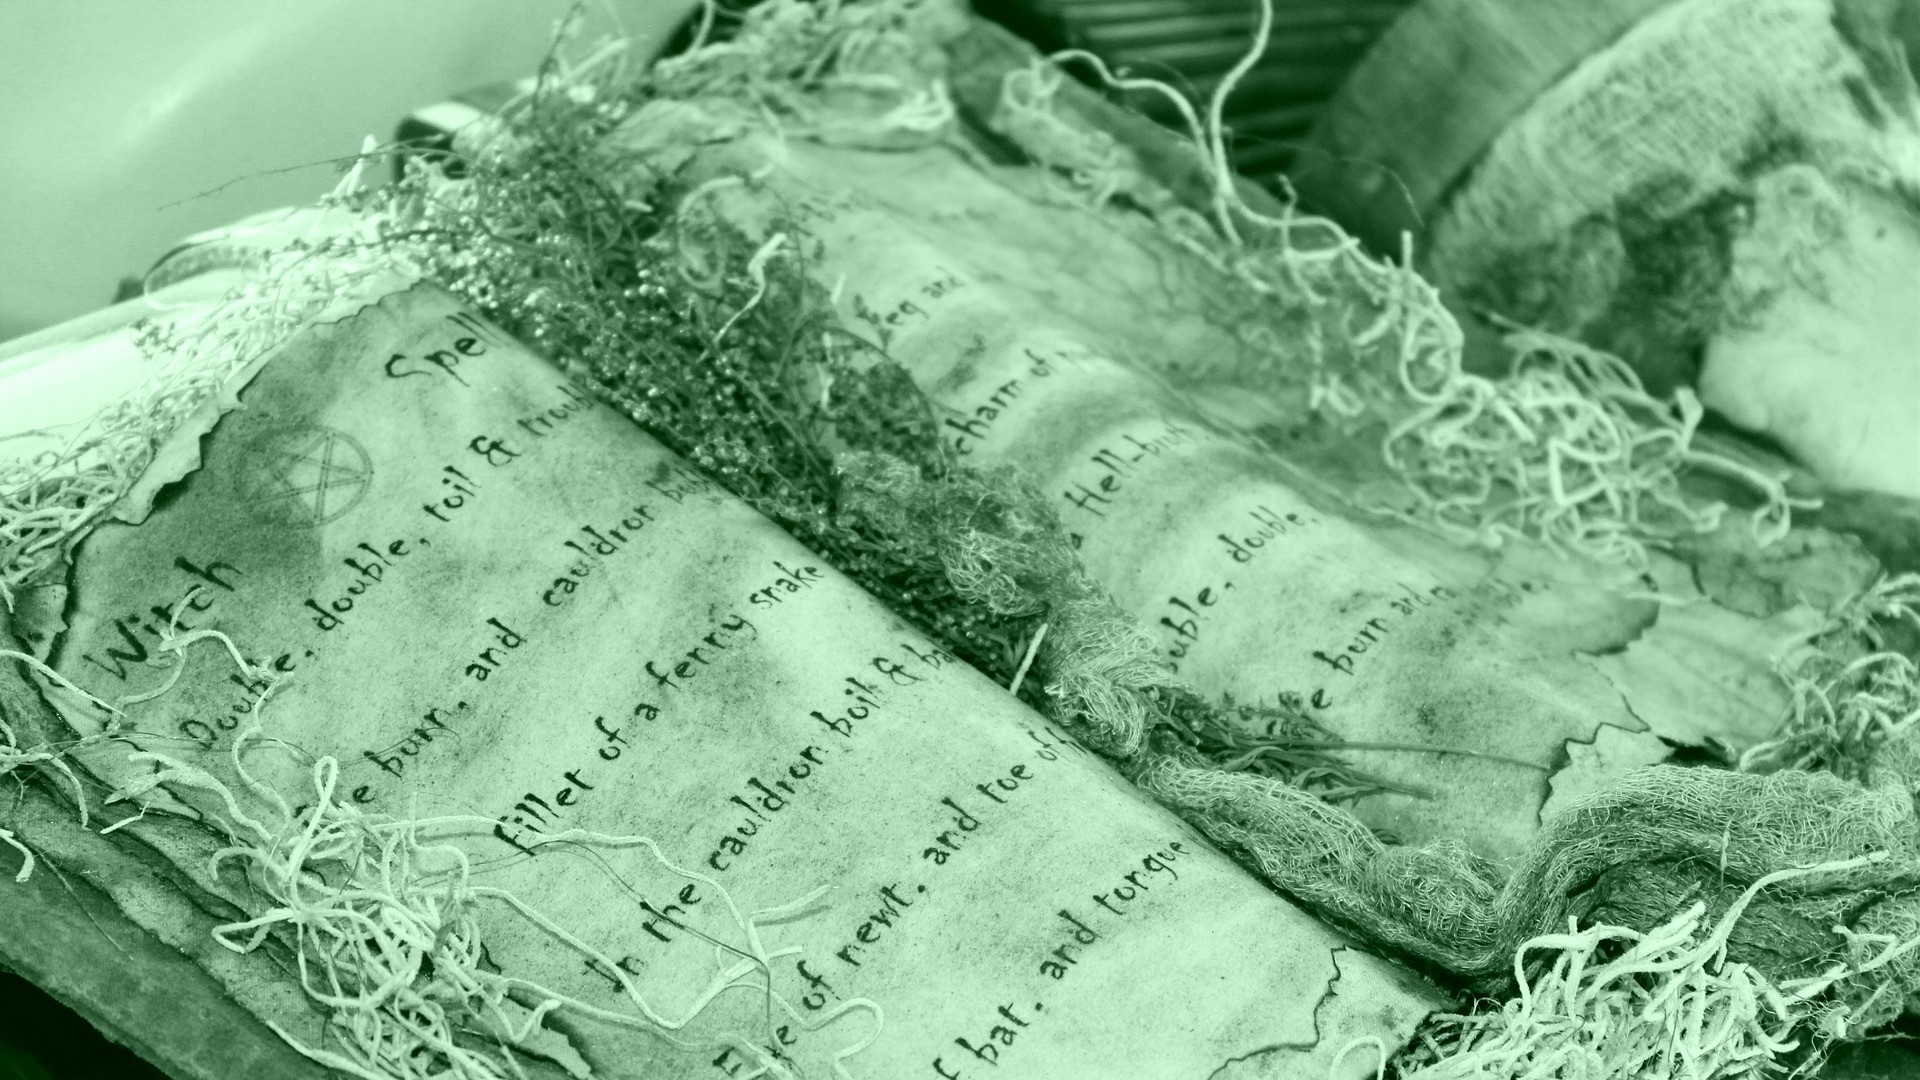 Witch Spell
Double, double, toil & troub
e burn, and cauldron bubb
fillet of a fenny snake
In the cauldron boil & ba
E e of newt. and toe of
f bat. and tongue
leg and
charm of
a Hell-broth
ouble, double,
e burn and